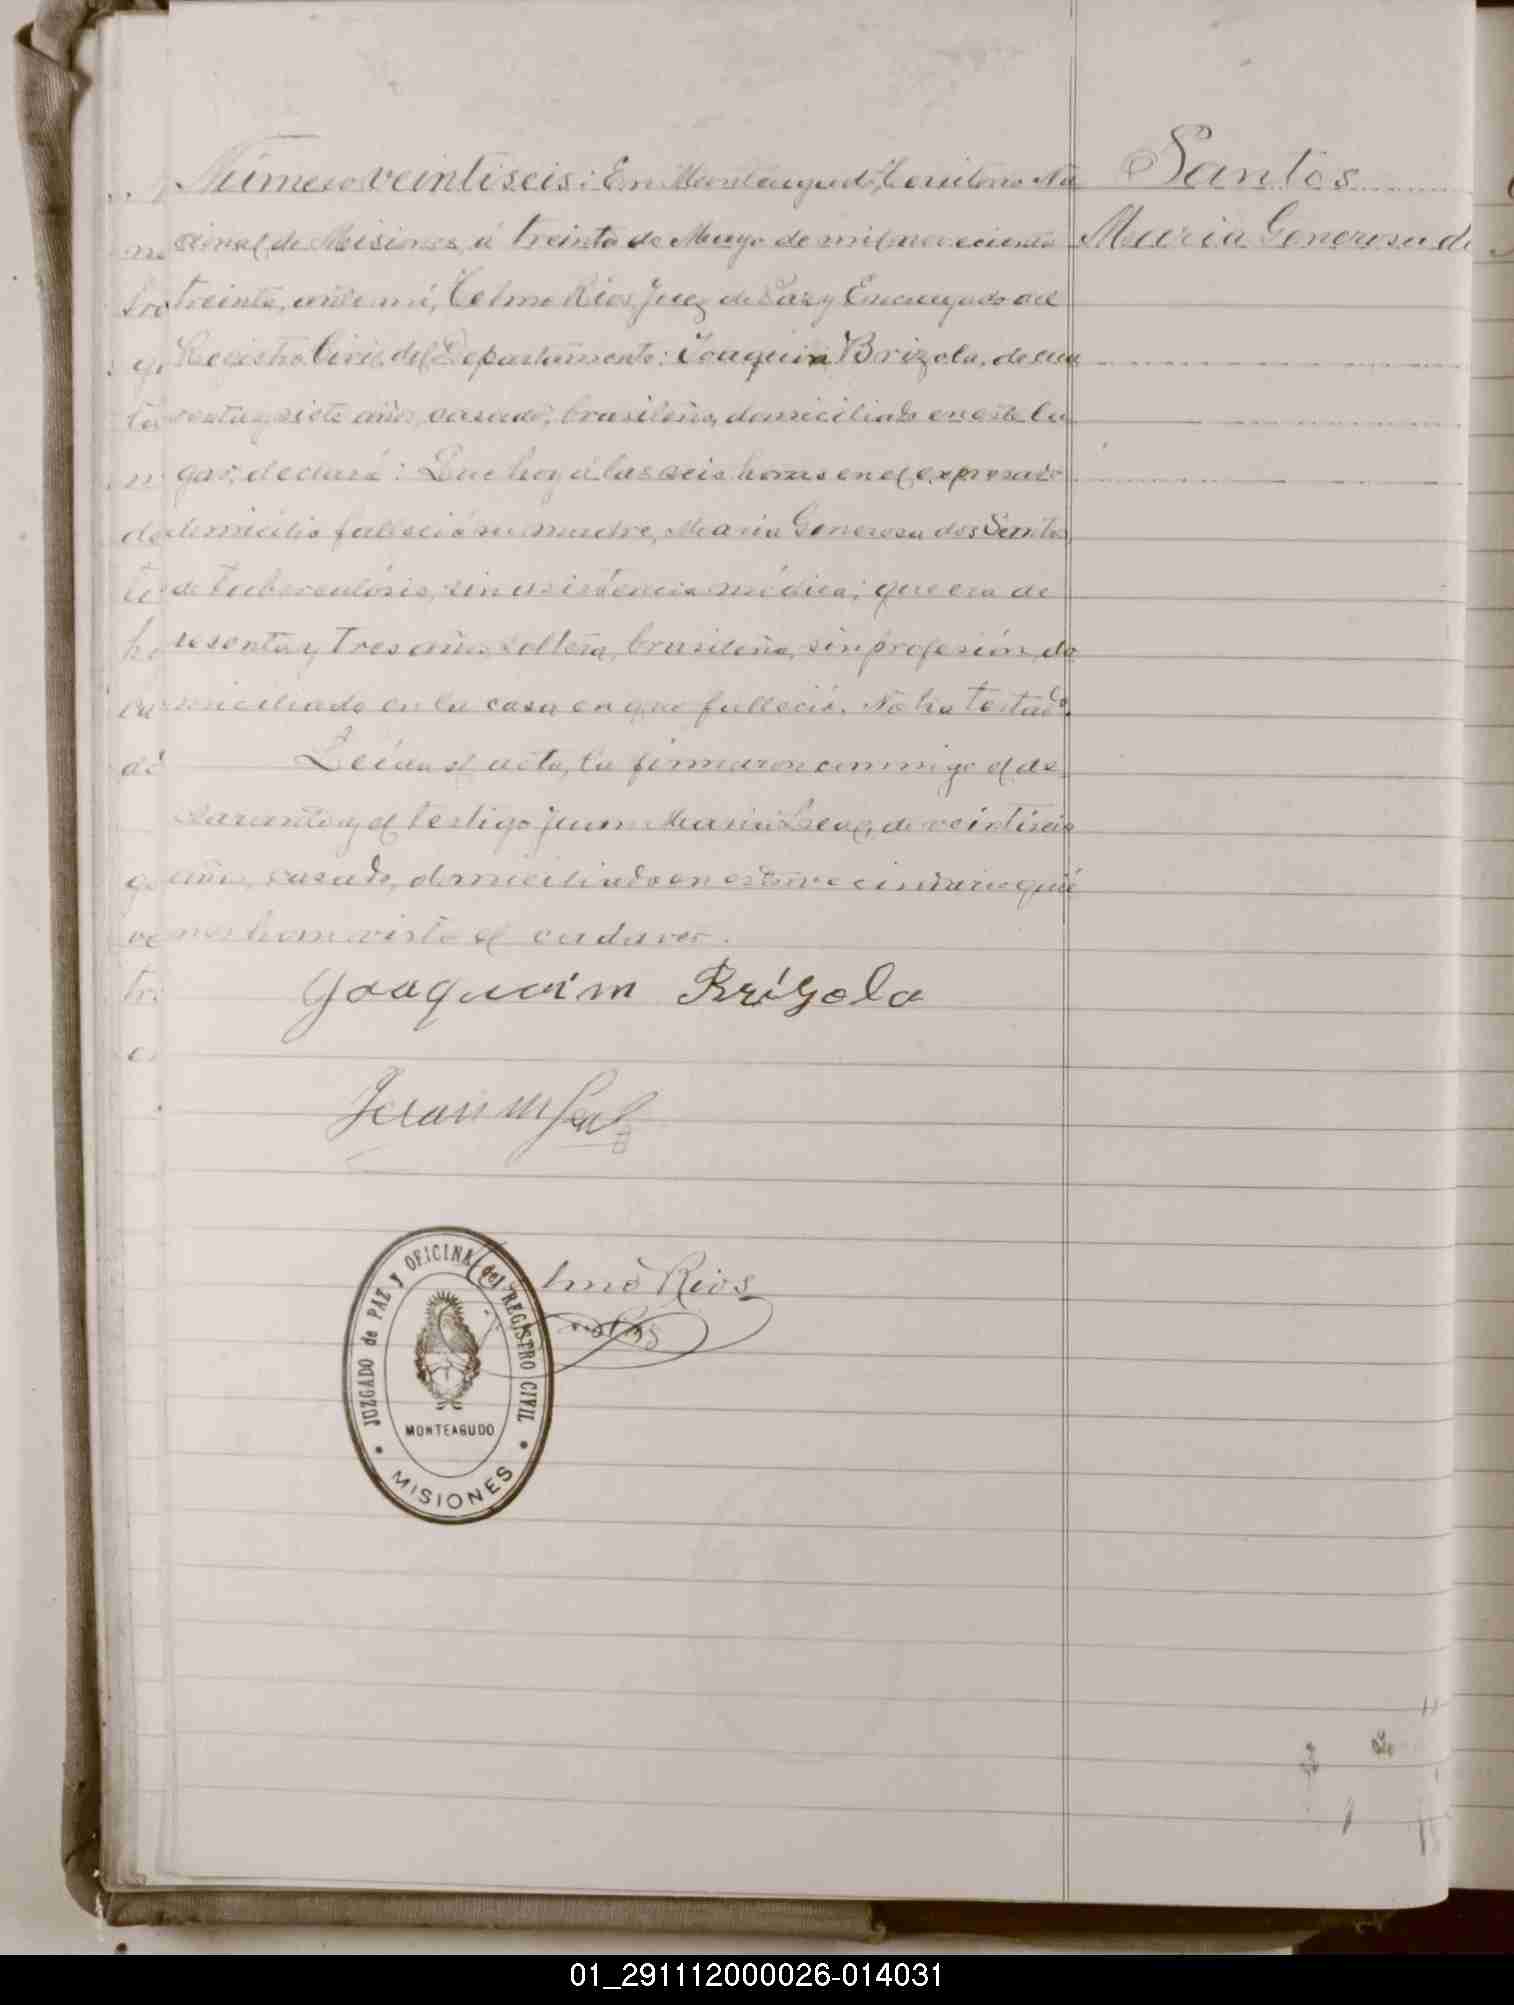 Santos
Maria Generosa d
Número veintiseis: En Monteagudo, Territorio Na
cional de Misiones, á treinta de Mayo de mil novecientos
treinta, ante mí, Telmo Ríos, Juez de Paz y Encargado del
Registro Civil del Departamento: Joaquin Brizola, de cua
renta y siete años, casado, brasileño, domiciliado en este lu
gar, declaró: Que hoy á las seis horas en el expresado
domicilio falleció su madre, Maria Generosa dos Santos
de tuberculósis, sin asistencia médica; que era de
sesenta y tres años, soltera, brasileña, sin profesión, do
miciliada en la casa en que falleció. No ha testado.
Leída el acta, la firmaron conmigo el de
clarante y el testigo Juan Maria Leal, de veintiseis
años, casado, domiciliado en este vecindario quié
nes han visto el cadaver.
Joaquim Brizola
Juan M Leal
Telmo Rios
JUZGADO de PAZ y OFICINA del REGISTRO CIVIL
MONTEAGUDO
MISIONES
01_291112000026-014031